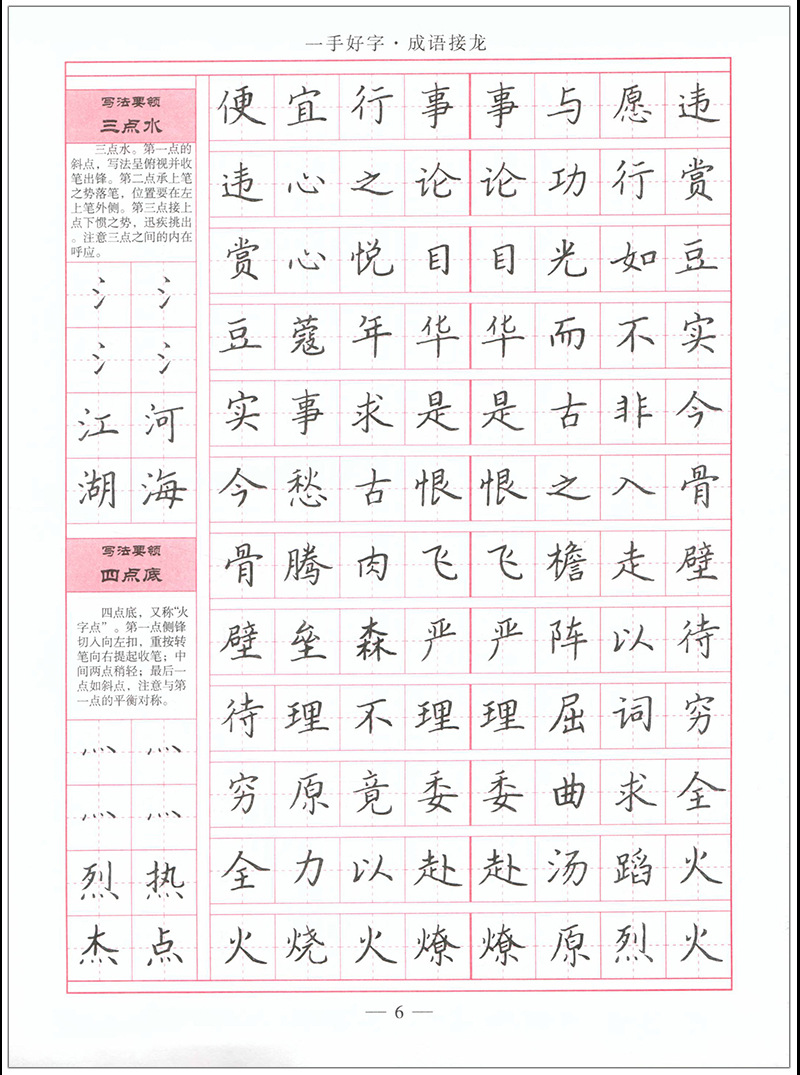 一手好字·成语接龙
写法要领
三点水
三点水。第一点的
斜点，写法呈俯视并收
笔出锋。第二点承上笔
之势落笔，位置要在左
上笔外侧。第三点接上
点下惯之势，迅疾挑出
。注意三点之间的内在
呼应。
氵 氵
氵 氵
江 河
湖 海
写法要领
四点底
四点底，又称“火
字点”。第一点侧锋
切入向左扣，重按转
笔向右提起收笔；中
间两点稍轻；最后一
点如斜点，注意与第
一点的平衡对称。
灬 灬
灬 灬
烈 热
杰 点
便宜行事事与愿违
违心之论论功行赏
赏心悦目目光如豆
豆蔻年华华而不实
实事求是是古非今
今愁古恨恨之入骨
骨腾肉飞飞檐走壁
壁垒森严严阵以待
待理不理理屈词穷
穷原竟委委曲求全
全力以赴赴汤蹈火
火烧火燎燎原烈火
— 6 —